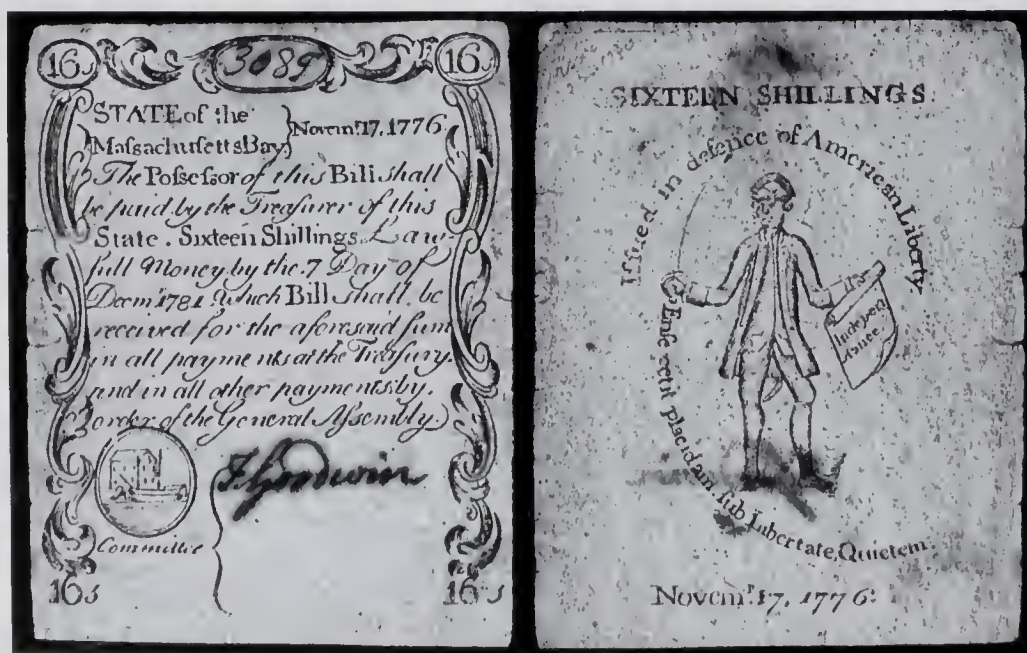 16s 3089 16s
STATE of the
MaſsachuſettsBay
Novemr.17.1776
The Poſseſsor of this Bill shall
be paid by the Treaſurer of this
State . Sixteen Shillings Law-
full Money by the 7 Day of
Decmr. 1781 which Bill shall be
received for the aforesaid ſum
in all payments at the Treaſury
and in all other payments by
order of the General Aſsembly
F Goodwin
Committee
16s 16s
SIXTEEN SHILLINGS
Iſſued in defence of American Liberty
Independance
Enſe petit placidam, ſub Libertate, Quietem
Novemr.17, 1776: